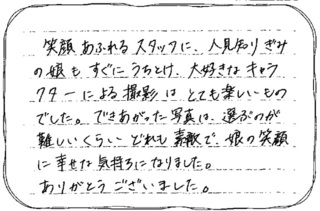 笑顔あふれるスタッフに、人見知りぎみ
の娘も すぐにうちとけ、大好きなキャラ
クターによる撮影は とても楽しいもの
でした。できあがった写真は、選ぶのが
難しいくらい どれも素敵で、娘の笑顔
に幸せな気持ちになりました。
ありがとうございました。